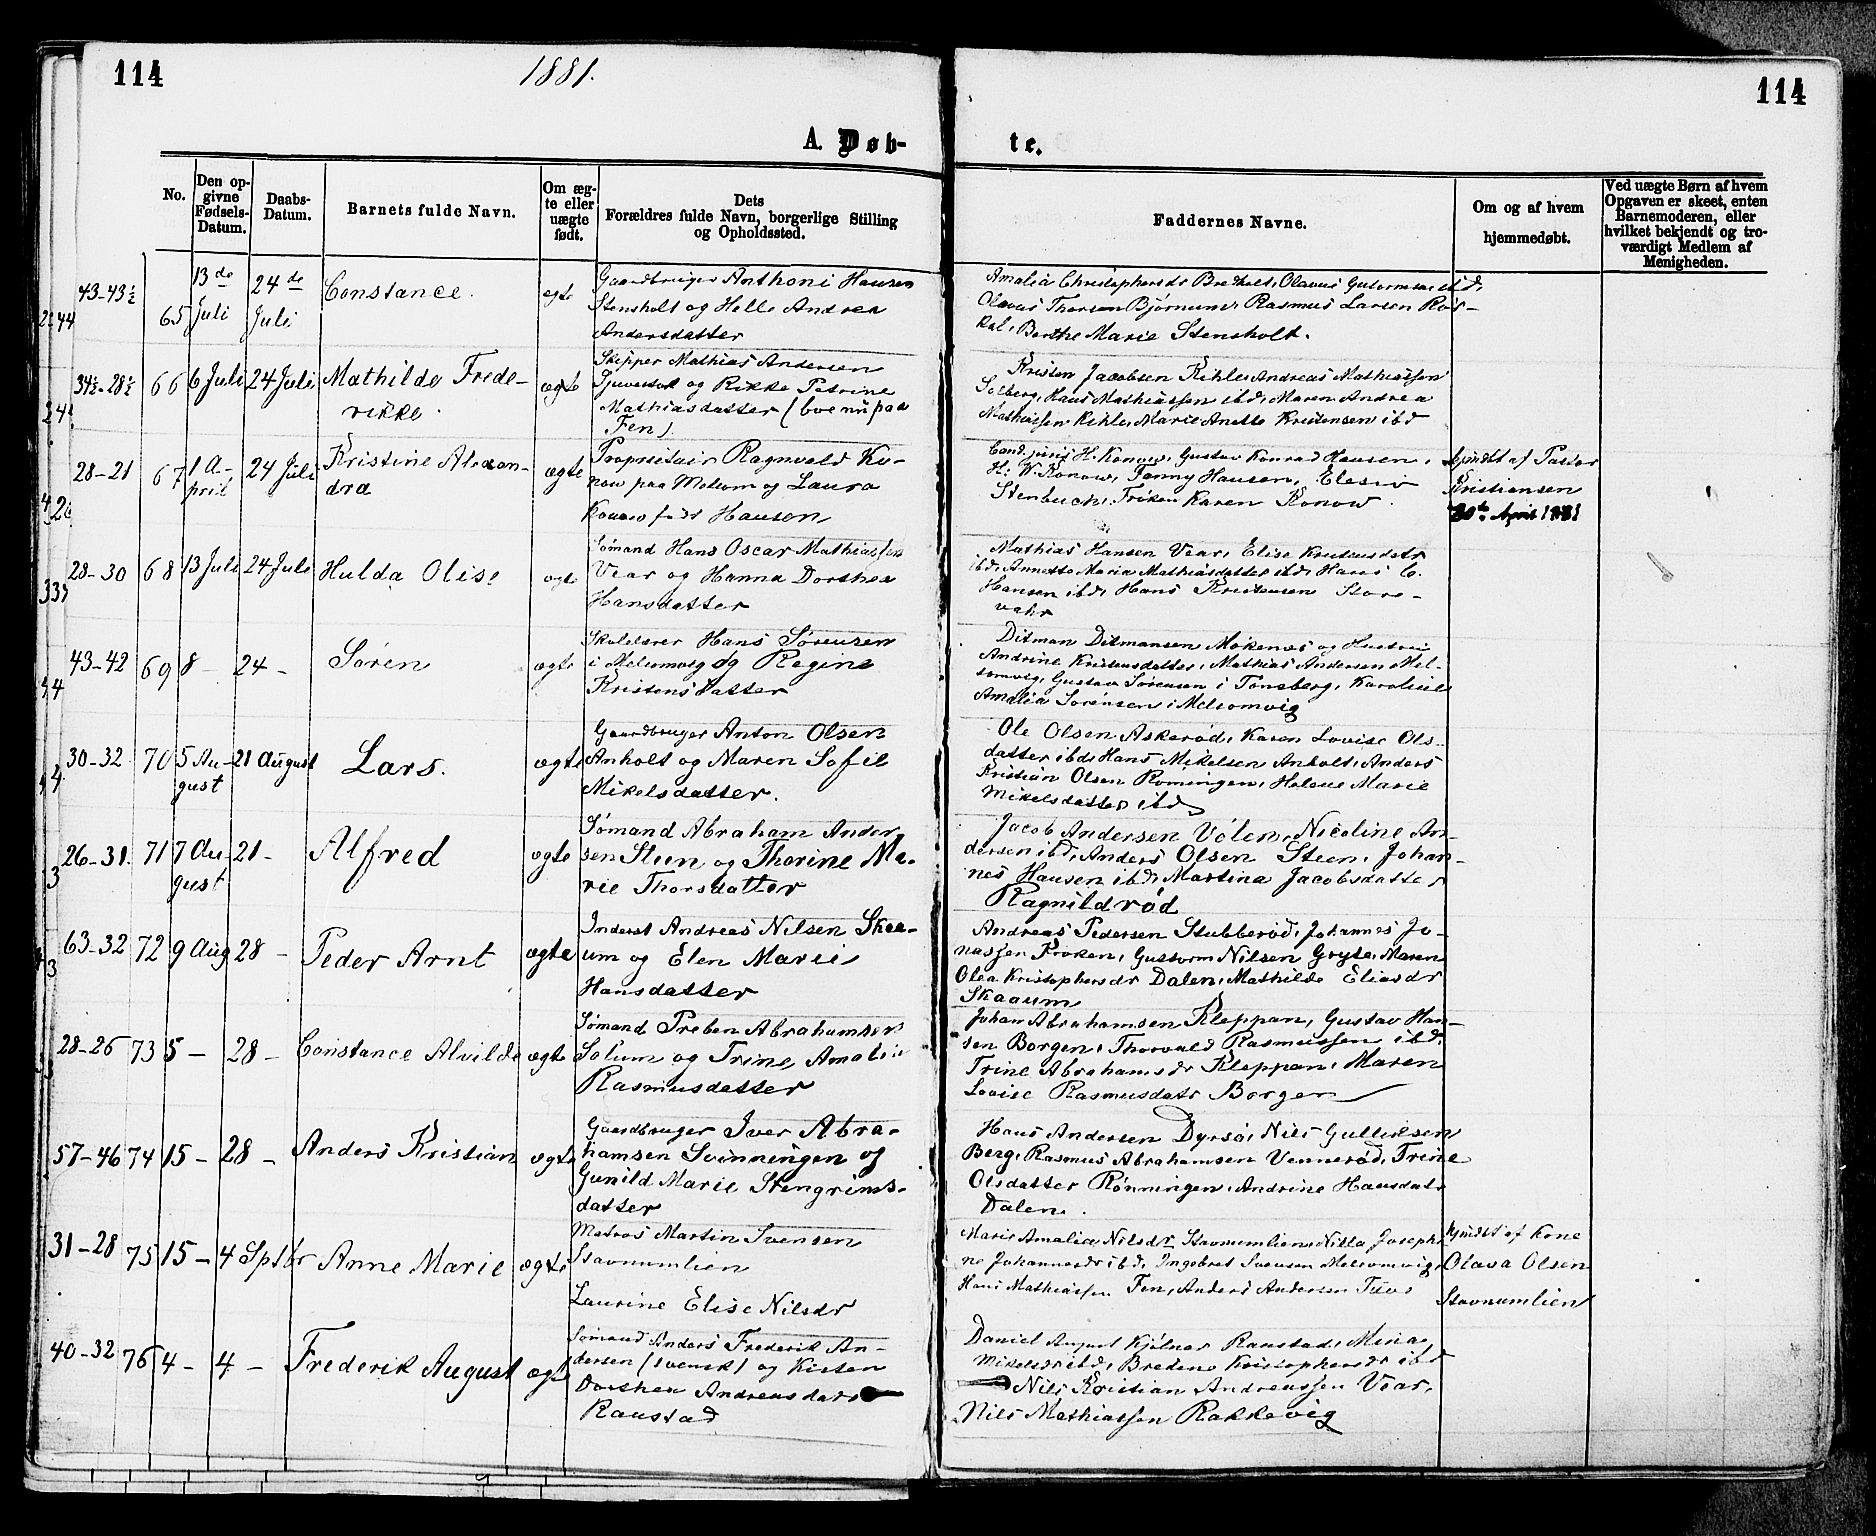 114
1881.
114
A. Døb-
te.
No.
Den op-
givne
Fødsels-
Datum.
Daabs-
Datum.
Barnets fulde Navn.
Om æg-
te eller
uægte
født.
Dets
Forældres fulde Navn, borgerlige Stilling
og Opholdssted.
Faddernes Navne.
Om og af hvem
hjemmedøbt.
Ved uægte Børn af hvem
Opgaven er skeet, enten
Barnemoderen, eller
hvilket bekjendt og tro-
værdigt Medlem af
Menigheden.
43-43½
65
13de
Juli
24de
Juli
Constance.
ægte
Gaardbruger Anthoni Hansen
Stensholt og Helle Andrea
Andersdatter
Amalia Christophersdr Olavus Guttormsen ibd,
Olavus Thorsen Bjørnum, Rasmus Larsen Ros-
Berthe Marie Stensholt.
34½-28½
66
6 Juli
24 Juli
Mathilde Frede-
rikke.
ægte
Skipper Mathias Andersen
og Rikke Petrine
Mathiasdatter (boe nu paa
Fen)
Kristen Jacobsen Kihle, Andreas Mathiassen
Solberg, Hans Mathiassen ibd, Maren Andrea
Mathiassen Kihle, Marie Anette Kristensen ibd
28-21
67
1 A-
pril
24 Juli
Kristine Alexan-
dra
ægte
Propritair Ragnvald Ko-
now paa Melsom og Laura
Konow født Hansen
Cand. juris H. Konow, Gustav Konrad Hansen,
H. W. Konow, Fanny Hansen, Elesiv
Stenbuch, Frøken Karen Konow.
hjmdbt af Pastor
Kristiansen
April 1881
28-30
68
13 Juli
24 Juli
Hulda Olise
ægte
Sømand Hans Oscar Mathiassen
Vear og Hanna Dorthea
Hansdatter
Mathias Hansen Vear, Elise Knutsens datr
ibd, Annette Maria Mathiasdatter ibd, Hans C.
Hansen ibd, Hans Kristensen Store-
vahr
43-42
69
8 -
24 -
Søren
ægte
Skolelærer Hans Sørensen
i Melsomvig og Regine
Kristensdatter
Ditman Ditmansen Mokenæs og Hustru
Andrine Kristensdatter, Mathias Andersen Mel-
somvig, Gustav Sørensen i Tønsberg, Karoline
Amalia Sørensen i Melsomvig
30-32
70
5 Au-
gust
21 August
Lars.
ægte
Gaardbruger Anton Olsen
Anholt og Maren Sofie
Mikelsdatter.
Ole Olsen Askerød, Karen Lovise Ols-
datter ibd, Hans Mikelsen Anholt, Anders
Kristian Olsen Rømingen, Helene Marie
Mikelsdatter ibd
26-31.
71
7 Au-
gust
21 -
Alfred
ægte
Sømand Abraham Ander
sen Steen og Thorine Ma-
rie Thorsdatter
Jacob Andersen Vølen, Nicoline An-
dersen ibd, Anders Olsen Steen, Johan-
nes Hansen ibd, Martina Jacobsdatter
Ragnildrød
63-32
72
9 Aug
28 -
Peder Arnt
ægte
Inderst Andreas Nilsen Skaa-
um og Elen Marie
Hansdatter
Andreas Pedersen Stubberød, Johannes Jo-
nassen Frøken, Guttorm Nilsen Gryte, Maren
Olea Kristophersdr Dalen, Mathilde Eliasdr
Skaaum
28-26
73
5 -
28 -
Constance Alvilde
ægte
Sømand Preben Abrahamsen
Solum og Trine Amalie
Rasmusdatter
Johan Abrahamsen Kleppan, Gustav Han-
sen Borgen, Thorvald Rasmussen ibd,
Trine Abrahamsdr Kleppan, Maren
Lovise Rasmusdatr Borgen
57-46
74
15 -
28 -
Anders Kristian
ægte
Gaardbruger Iver Abra-
hamsen Svinningen og
Gunild Marie Stengrims-
datter
Hans Andersen Dyrsø, Nils Gulliksen
Berg, Rasmus Abrahamsen Vennerød, Trine
Olsdatter Rønningen, Andrine Hansdatr
Dalen.
31-28
75
15 -
4 Sptbr
Anne Marie
ægte
Matros Martin Svensen
Stavnumlien
Laurine Elise Nilsdr
Marie Amalia Nilsdr Stavnumlien, Nilla Josephi
ne Johannesdr ibd, Ingebret Svensen Melsomvig,
Hans Mathiassen Fen, Anders Andersen
hjmdbt af Kone
Olava Olsen
Stavnumlien
40-32
76
4 -
4 -
Frederik August
ægte
Sømand Anders Frederik An-
dersen (svensk) og Kirsten
Dorthea Andreasdatr
Ranstad
Daniel August Kjølner Ranstad, Mina
Mikelsdr ibd, Bredine Kristophersdr ibd
Nils Kristian Andreassen Vear,
Nils Mathiassen Rakkevig